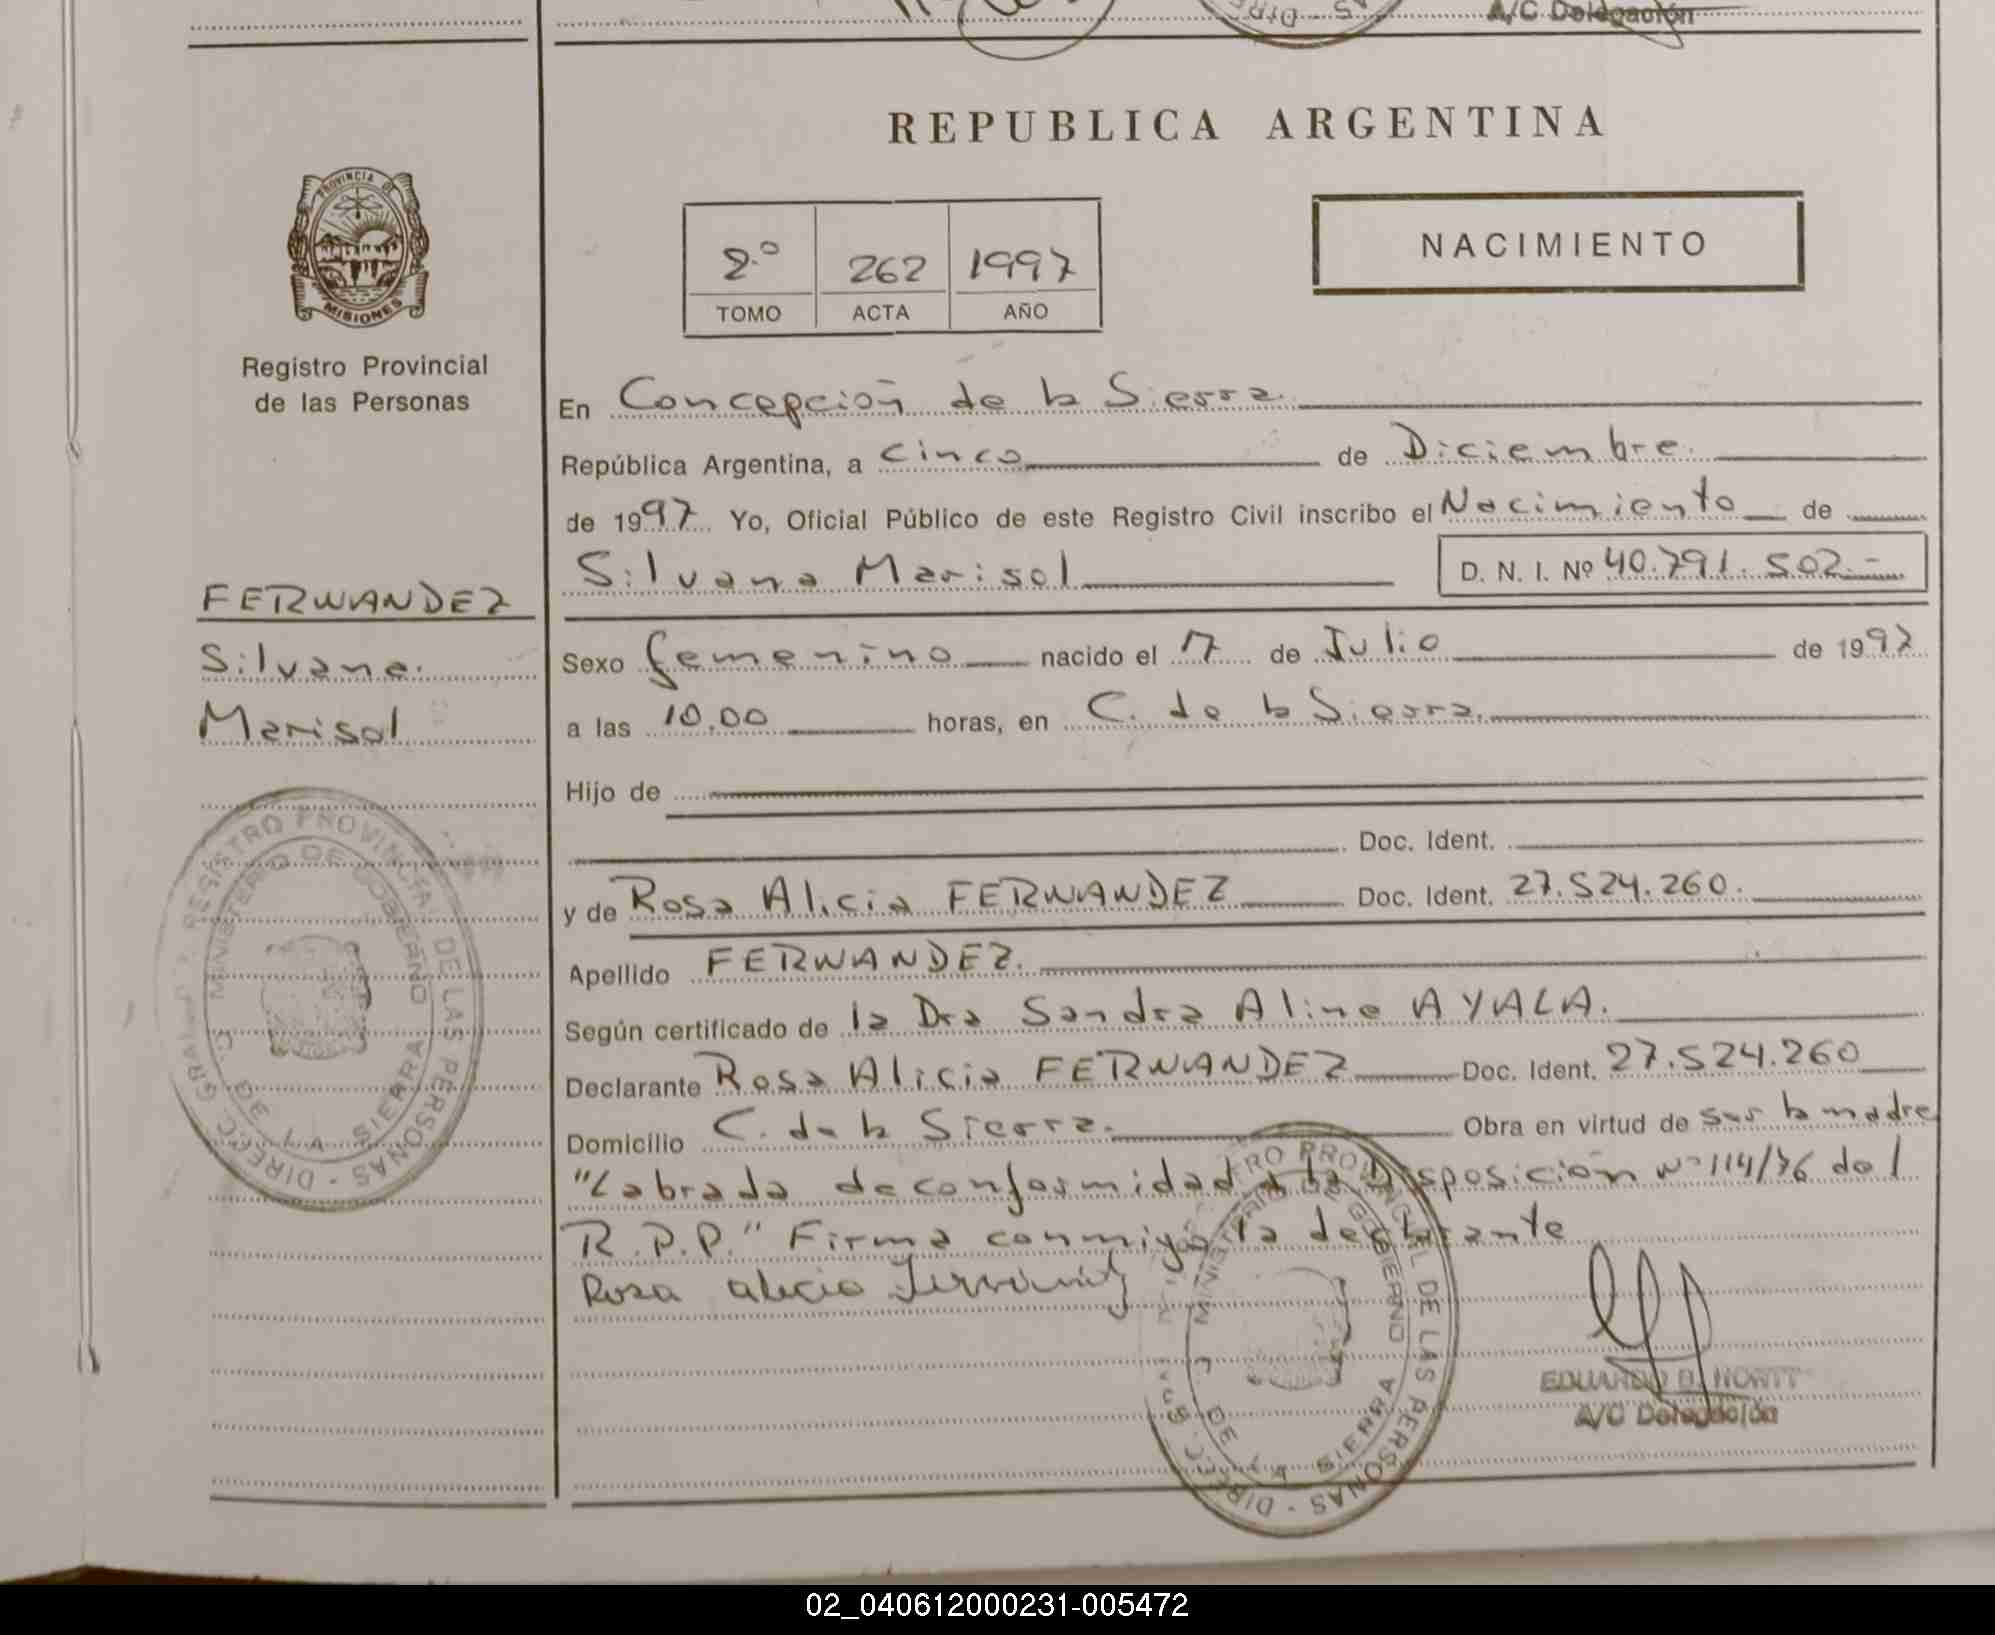 A/C Delegación
REPUBLICA ARGENTINA
PROVINCIA DE
MISIONES
Registro Provincial
de las Personas
2.º 262 1997
TOMO ACTA AÑO
NACIMIENTO
En Concepción de la Sierra.
República Argentina, a cinco de Diciembre.
de 1997 Yo, Oficial Público de este Registro Civil inscribo el Nacimiento de
Silvana Marisol D. N. I. Nº 40.791.502.-
FERNANDEZ
Silvana.
Marisol
Sexo femenino nacido el 17 de Julio de 1997
a las 10.00 horas, en C. de la Sierra.
Hijo de
Doc. Ident.
y de Rosa Alicia FERNANDEZ Doc. Ident. 27.524.260.
Apellido FERNANDEZ.
Según certificado de la Dra Sandra Aline AYALA.
Declarante Rosa Alicia FERNANDEZ Doc. Ident. 27.524.260
Domicilio C. de la Sierra. Obra en virtud de ser la madre
"Labrada de conformidad a la Disposición Nº 114/76 del
R.P.P." Firma conmigo la declarante
Rosa alicia
REGISTRO PROVINCIAL DE LAS PERSONAS - DIREC. GRAL.
MINISTERIO DE GOBIERNO
C. DE LA SIERRA
PROVINCIAL DE LAS PERSONAS - DIREC. GRAL.
MINISTERIO DE GOBIERNO
C. DE LA SIERRA
EDUARDO
A/C Delegación
02_040612000231-005472